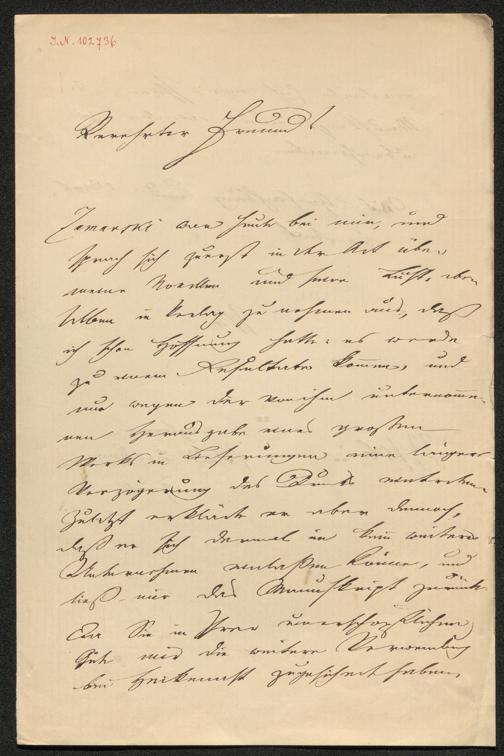 I.N. 102736
Verehrter Freund!
Zamarski war heute bei mir, und
sprach sich zuerst in der Art über
meine Novellen und seine Absicht,
selben in Verlag zu nehmen aus, daß
ich schon Hoffnung hatte: es werde
zu einem Resultate kommen, und
nur wegen der von ihm unternomme-
nen Herausgabe eines großen
Werks in Lieferungen eine längere
Verzögerung des Drucks eintreten.
Zuletzt erklärte er aber dennoch,
daß er sich dermal in kein weiteres
Unternehmen einlassen könne, und
ließ mir das Manuskript zurück.
Da Sie in Ihrer unerschöpflichen
Güte mir die weitere Verwendung
bei Heckenast zugesichert haben,